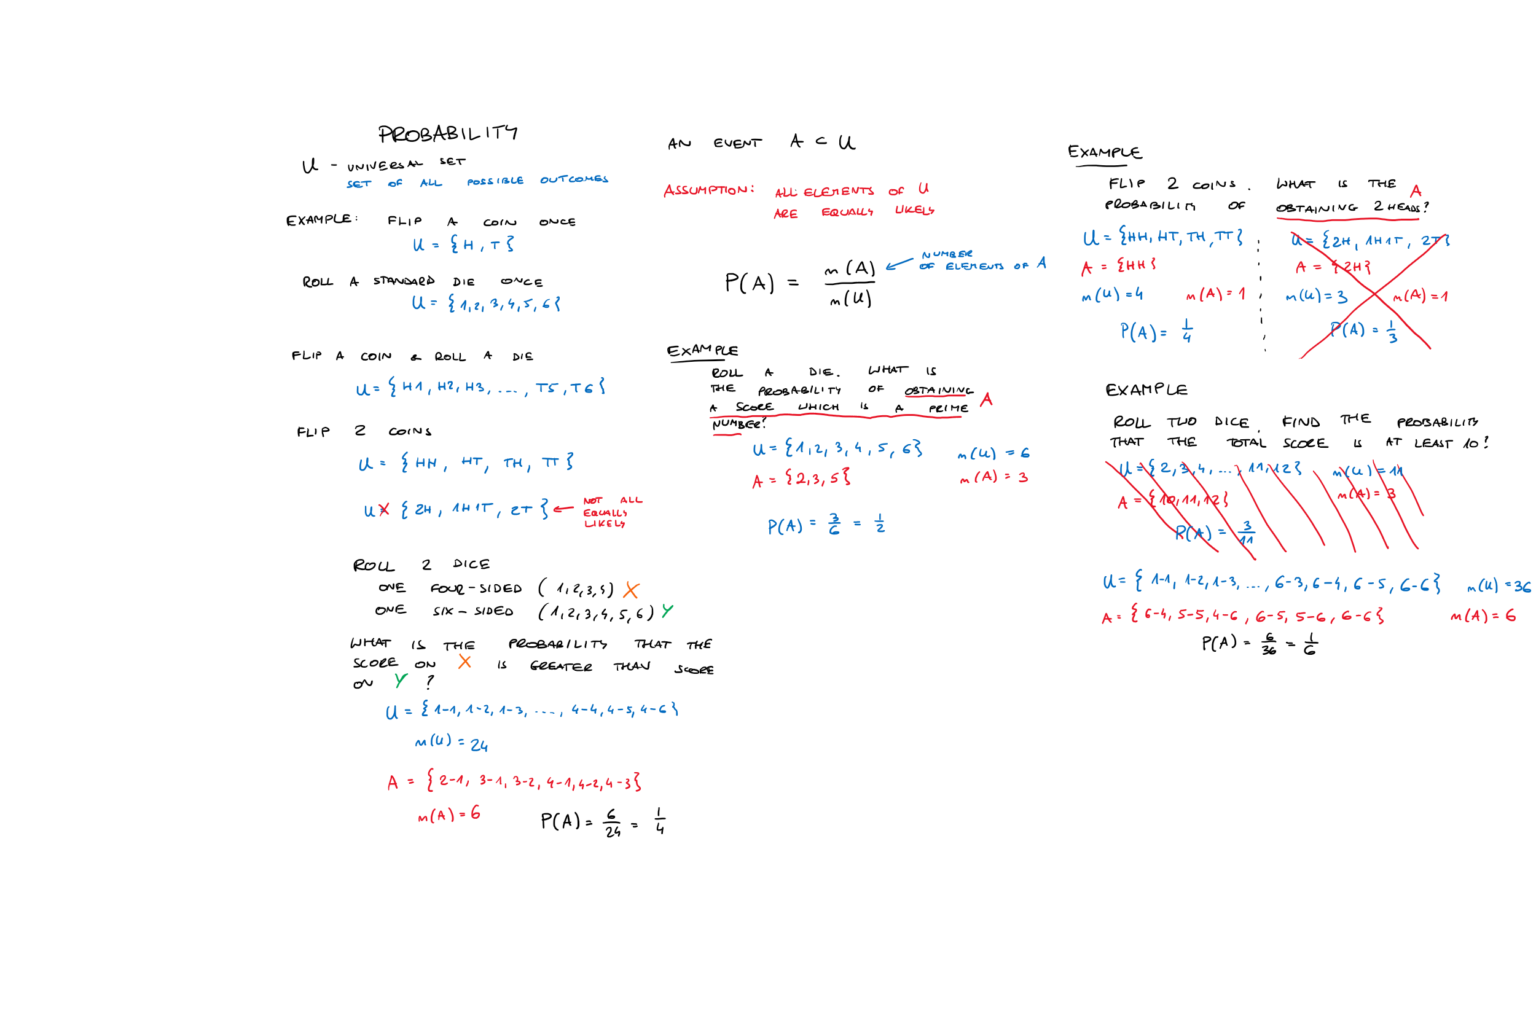 PROBABILITY
U - UNIVERSAL SET
SET OF ALL POSSIBLE OUTCOMES
EXAMPLE: FLIP A COIN ONCE
U = {H, T}
ROLL A STANDARD DIE ONCE
U = {1,2,3,4,5,6}
FLIP A COIN & ROLL A DIE
U = {H1, H2, H3, ..., T5, T6}
FLIP 2 COINS
U = {HH, HT, TH, TT}
U X {2H, 1H1T, 2T} ← NOT ALL
EQUALLY
LIKELY
ROLL 2 DICE
ONE FOUR-SIDED (1,2,3,4) X
ONE SIX-SIDED (1,2,3,4,5,6) Y
WHAT IS THE PROBABILITY THAT THE
SCORE ON X IS GREATER THAN SCORE
ON Y ?
U = {1-1, 1-2, 1-3, ...., 4-4, 4-5, 4-6}
n(U) = 24
A = {2-1, 3-1, 3-2, 4-1, 4-2, 4-3}
n(A) = 6
P(A) = 6/24 = 1/4
AN EVENT A ⊂ U
ASSUMPTION: ALL ELEMENTS OF U
ARE EQUALLY LIKELY
P(A) = n(A)/n(U) ← NUMBER
OF ELEMENTS OF A
EXAMPLE
ROLL A DIE. WHAT IS
THE PROBABILITY OF OBTAINING A
A SCORE WHICH IS A PRIME
NUMBER?
U = {1,2,3,4,5,6} n(U) = 6
A = {2,3,5} n(A) = 3
P(A) = 3/6 = 1/2
EXAMPLE
FLIP 2 COINS. WHAT IS THE A
PROBABILITY OF OBTAINING 2 HEADS?
U = {HH, HT, TH, TT}
A = {HH}
n(U) = 4 n(A) = 1
P(A) = 1/4
U = {2H, 1H1T, 2T}
A = {2H}
n(U) = 3 n(A) = 1
P(A) = 1/3
EXAMPLE
ROLL TWO DICE. FIND THE PROBABILITY
THAT THE TOTAL SCORE IS AT LEAST 10!
U = {2,3,4, ..., 11,12} n(U) = 11
A = {10,11,12} n(A) = 3
P(A) = 3/11
U = {1-1, 1-2, 1-3, ..., 6-3, 6-4, 6-5, 6-6} n(U) = 36
A = {6-4, 5-5, 4-6, 6-5, 5-6, 6-6} n(A) = 6
P(A) = 6/36 = 1/6